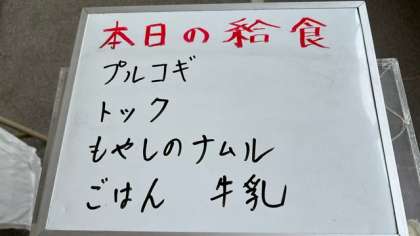 本日の給食
プルコギ
トック
もやしのナムル
ごはん 牛乳